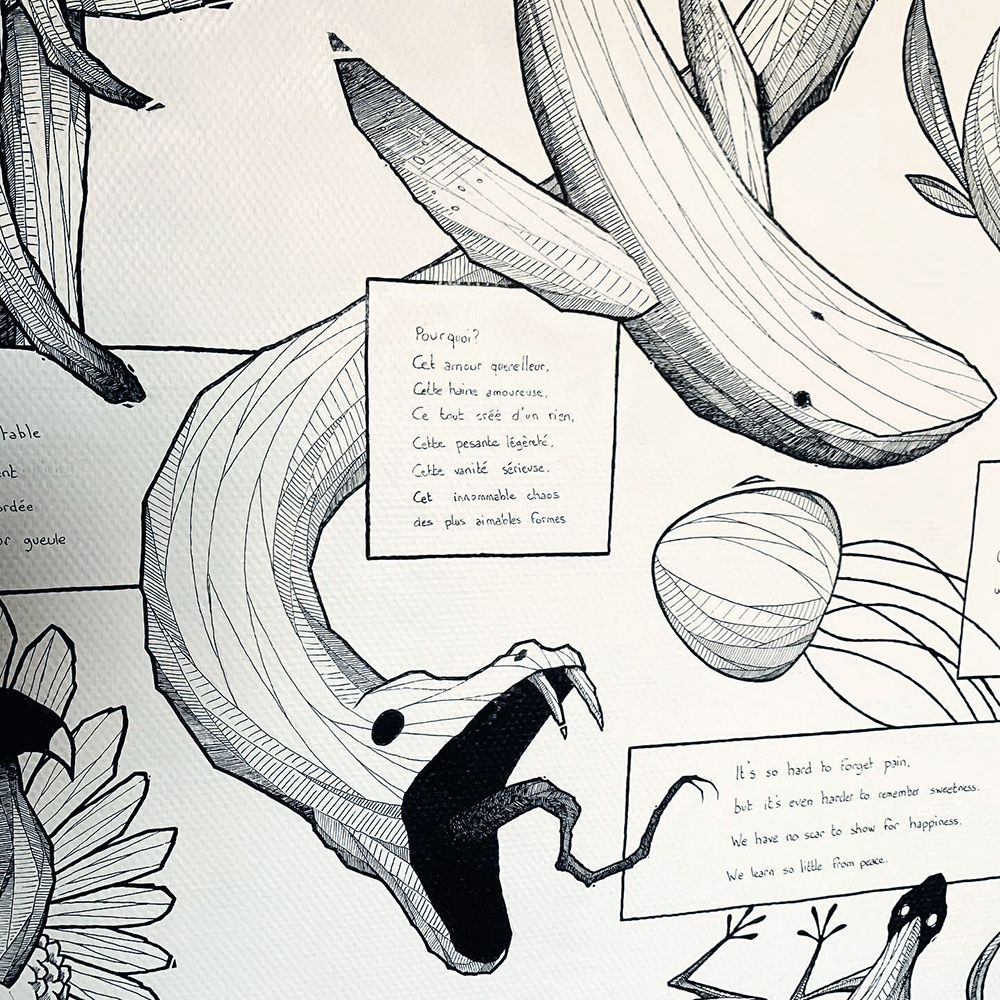 Pourquoi?
Cet amour querelleur,
Cette haine amoureuse,
Ce tout créé d'un rien,
Cette pesante légèreté,
Cette vanité sérieuse.
Cet innommable chaos
des plus aimables formes
table
ent
ordée
or gueule
It's so hard to forget pain,
but it's even harder to remember sweetness.
We have no scar to show for happiness.
We learn so little from peace.